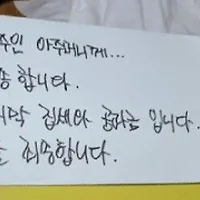 주인 아주머니께...
송합니다.
지막 집세와 공과금 입니다.
죄송합니다.